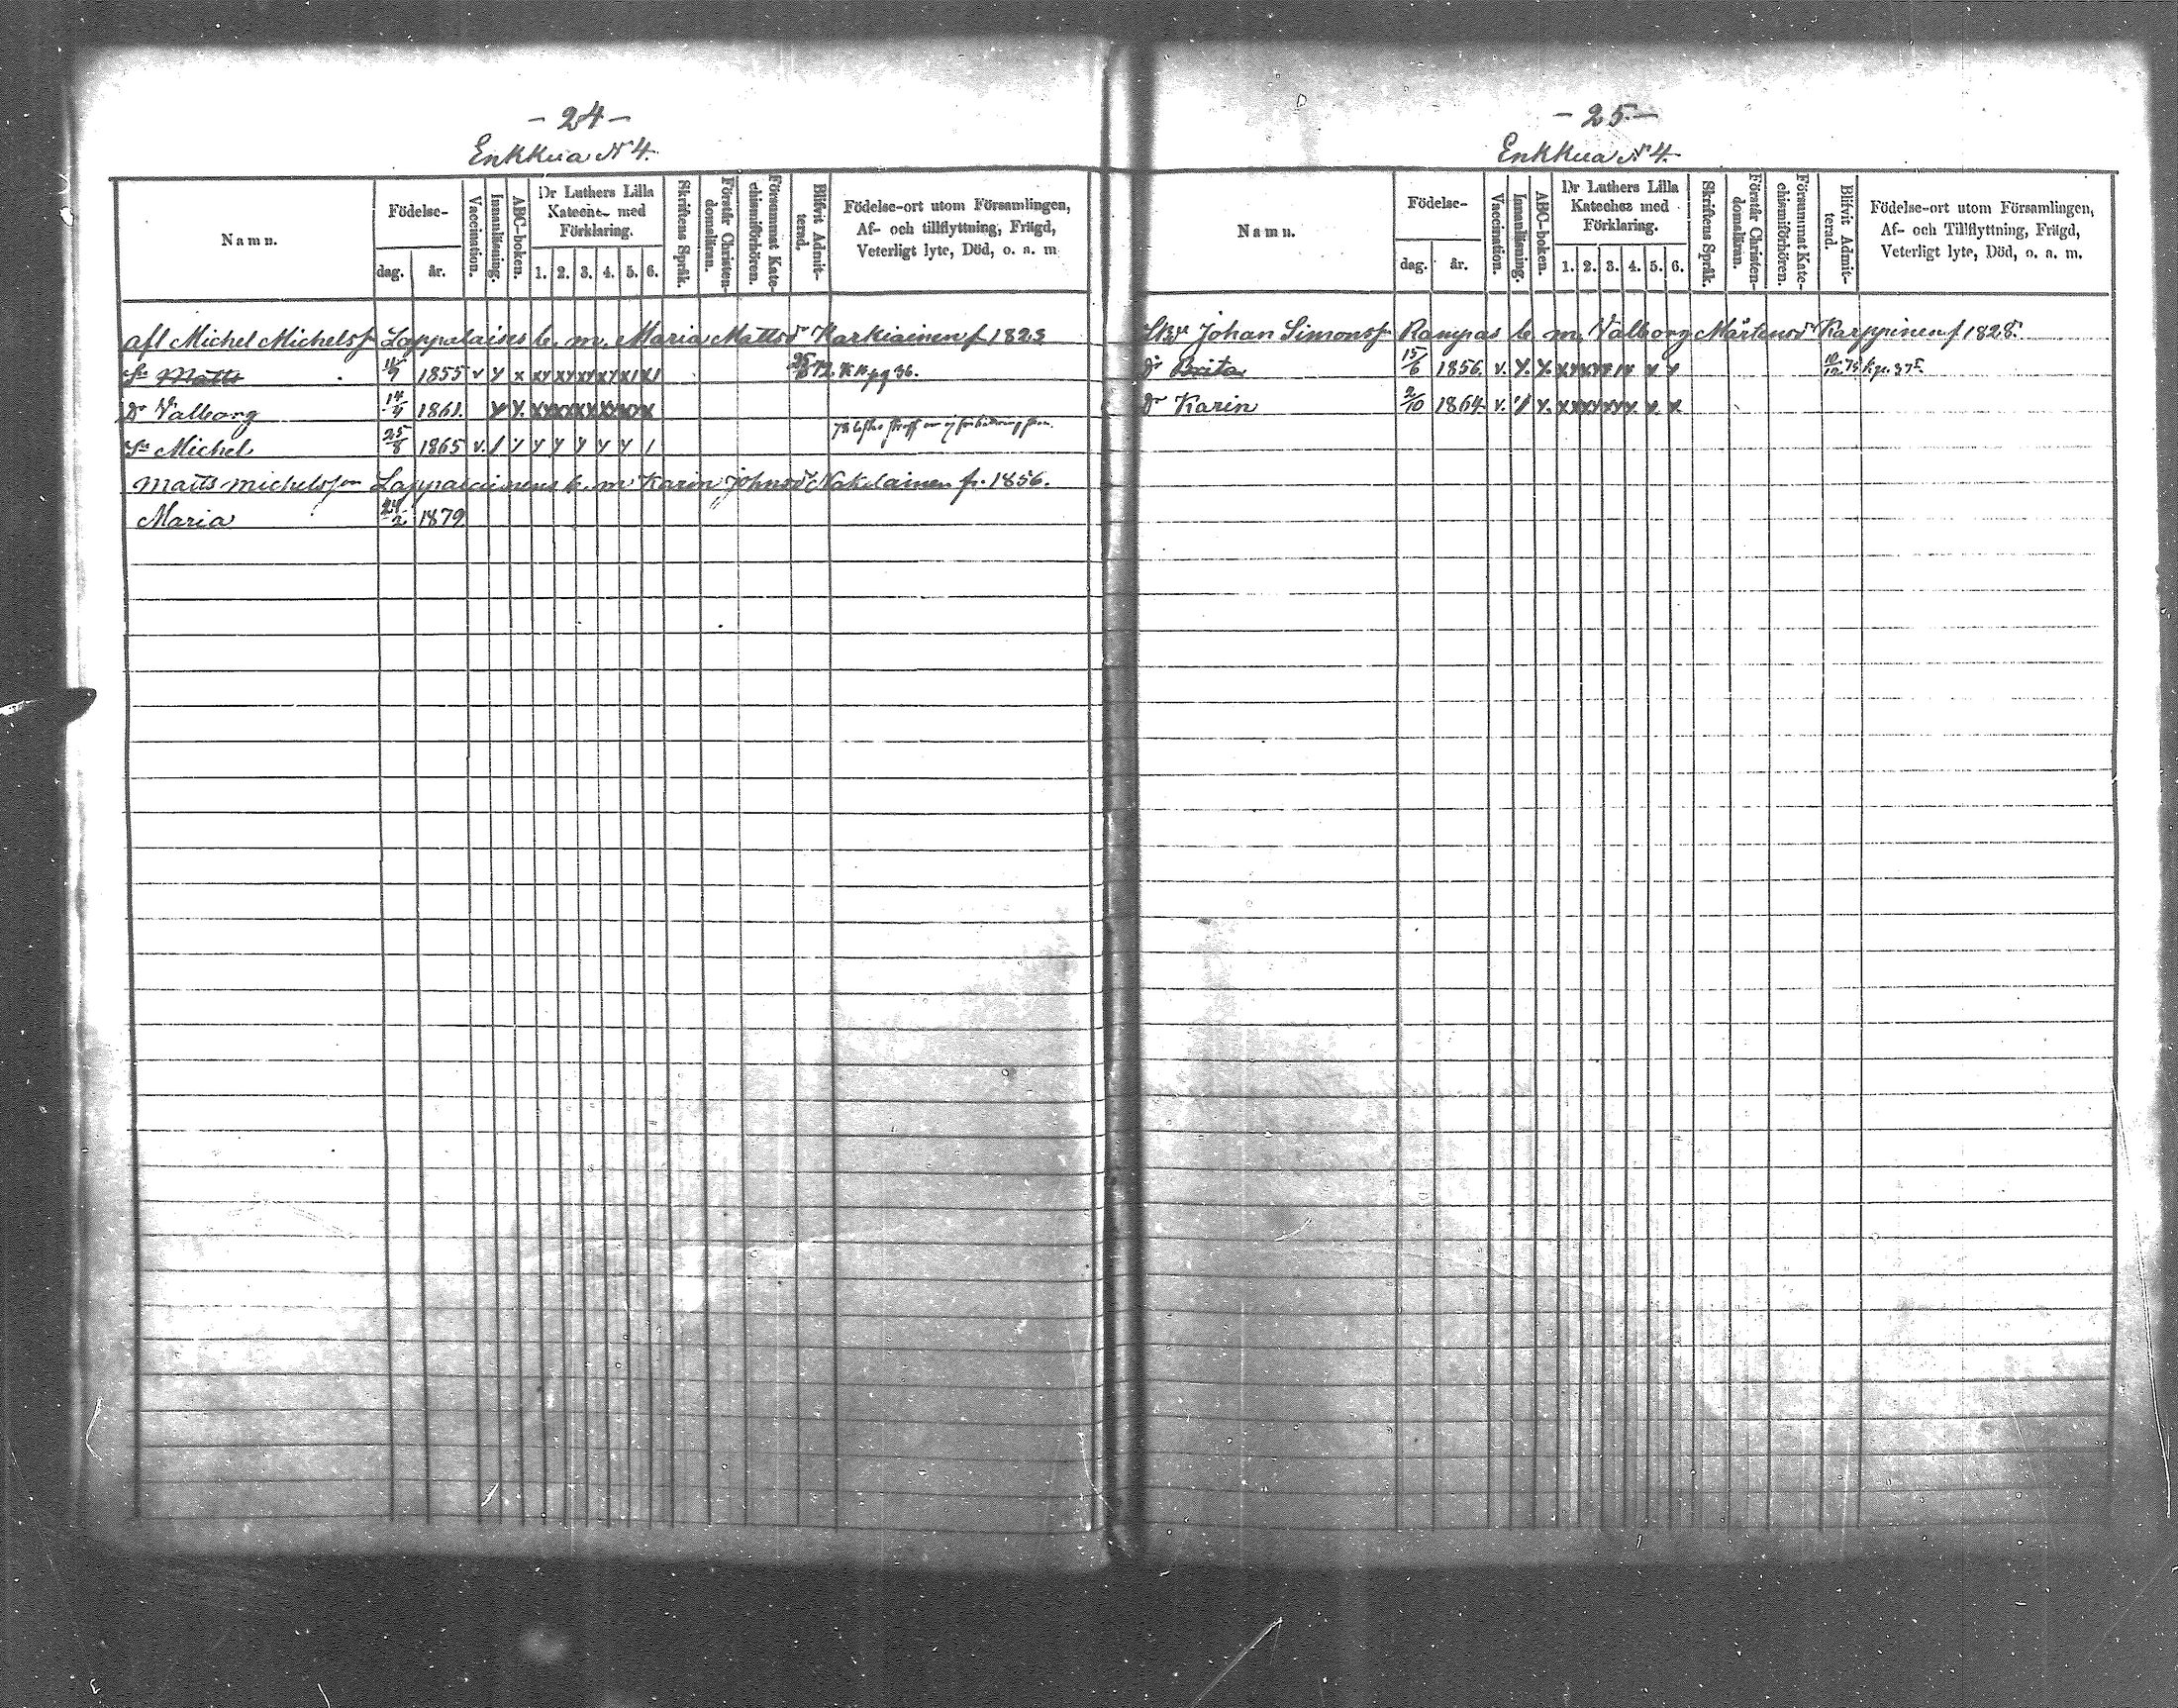 - 24 -
Enkkua N 4.
Namn. Födelse- dag. år. Vaccination. Innanläsning. ABC-boken. Dr Luthers Lilla Kateches med Förklaring. 1. 2. 3. 4. 5. 6. Skriftens Språk. Förstår Christendomsläran. Försummat Katechismiförhören. Blifvit Admitterad. Födelse-ort utom Församlingen, Af- och tillflyttning, Frägd, Veterligt lyte, Död, o. a. m
afl Michel Michelss. Lappalaises b. m. Maria Mattsdr Karkiainen f 1823
Sn Matts 1855 v y x xy xy xy xy x1 x1 72. pg 36.
Dr Valborg 14/4 1861. y y. xy xx xy xy xy x
Sn Michel 25/8 1865 v. / y y y y y y 1
Matts Michelsson Lappalainens b. m Karin Johnsdr f. 1856.
Maria 24/2 1879
- 25 -
Enkkua N 4.
Namn. Födelse- dag. år. Vaccination. Innanläsning. ABC-boken. Dr Luthers Lilla Kateches med Förklaring. 1. 2. 3. 4. 5. 6. Skriftens Språk. Förstår Christendomsläran. Försummat Katechismiförhören. Blifvit Admitterad. Födelse-ort utom Församlingen, Af- och Tillflyttning, Frägd, Veterligt lyte, Död, o. a. m.
Johan Simonss. Rampas b. m. Valborg Mårtensdr Karppinen f 1828.
Dr Brita 15/6 1856. v. y. y.
Dr Karin 2/10 1864. v. y y.